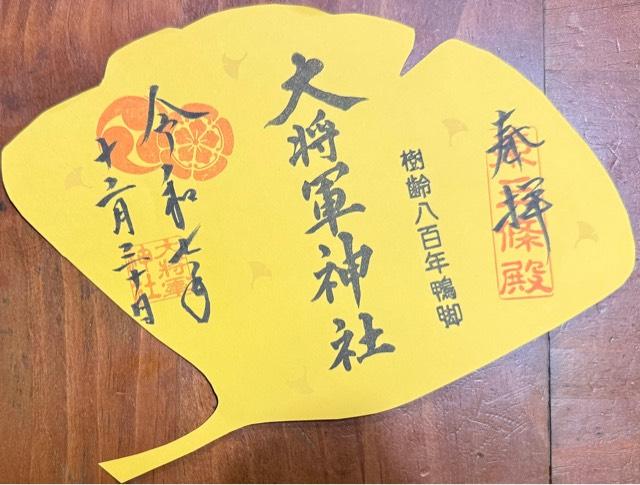 奉拝
東三條殿
樹齢八百年鴨脚
大将軍神社
令和七年
十二月三十日
大将軍
神社